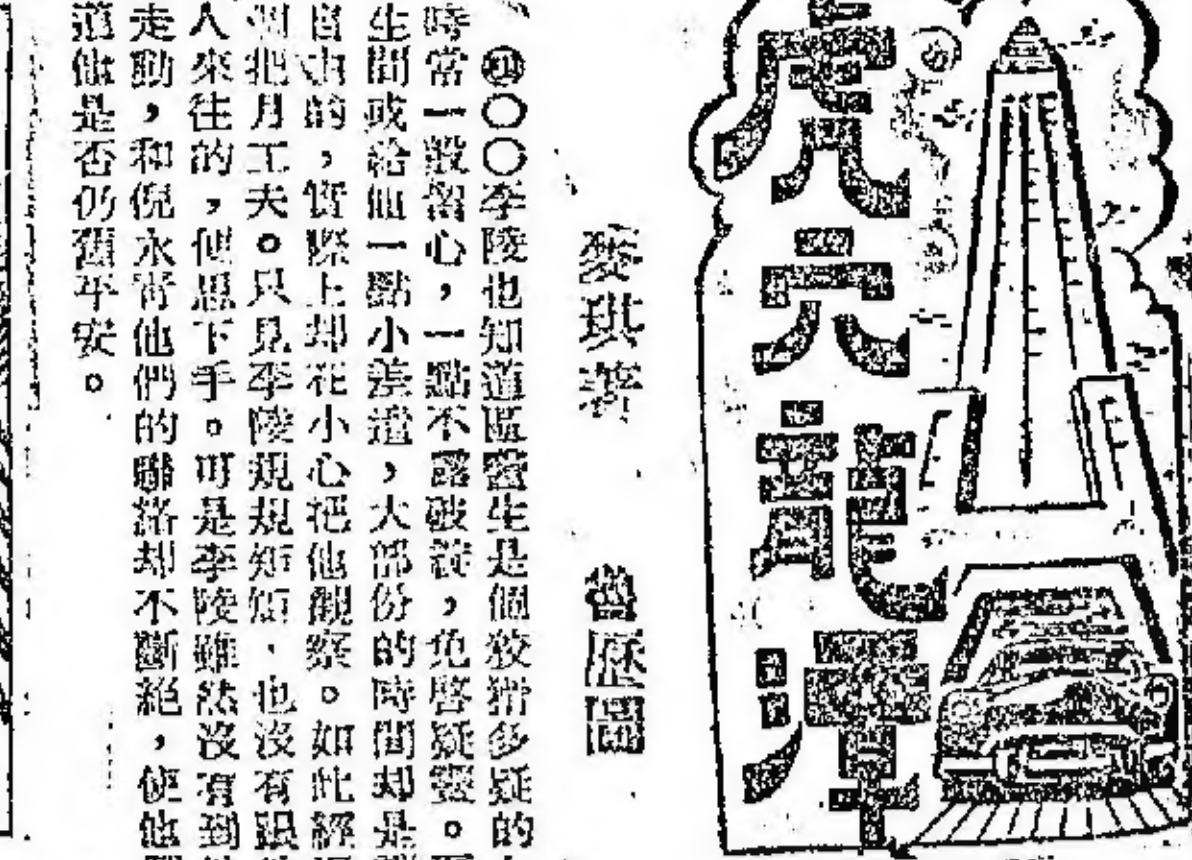 虎穴龍潭
麥琪著
曾歷圖
〇〇李陵也知道區營生是個狡猾多疑的
時常一般留心，一點不露破綻，免啓疑竇。
生間或給他一點小差遣，大部份的時間却是
自由的，實際上却在小心把他觀察。如此經
個把月工夫。只見李陵規規矩矩，也沒有跟
人來往的，便思下手。可是李陵雖然沒有到
走動，和倪永青他們的聯絡却不斷絕，使他
道他是否仍舊平安。